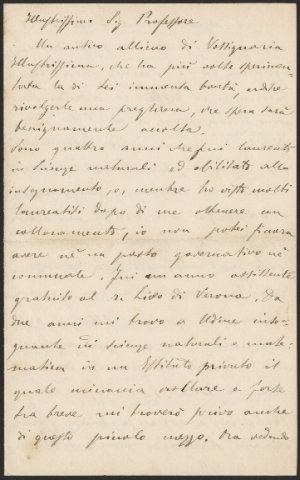 Illustrissimo Sig Professore
Un antico allievo di Vossignoria
Illustrissima, che ha più volte sperimen-
tata la di Lei immensa bontà, ardisce
rivolgerle una preghiera, che spera sarà
benignamente accolta.
Sono quattro anni che fui laureato
in scienze naturali ed abilitato allo
insegnamento, e, mentre ho visto molti
laureatisi dopo di me ottenere un
collocamento, io non potei finora
avere nè un posto governativo nè
comunale. Fui un anno assistente
gratuito al R. Liceo di Verona. Da
due anni mi trovo a Udine inse-
gnante di scienze naturali e mate-
matica in un Istituto privato il
quale minaccia crollare e forse
fra breve mi troverò privo anche
di questo piccolo mezzo. Ora vedendo